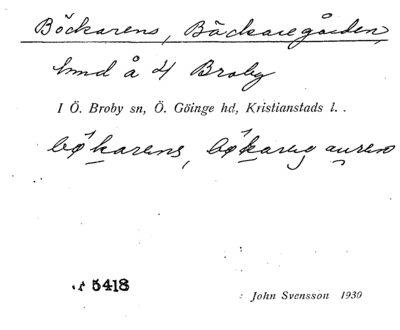 Böckarens, Bäckaregården,
hmd å 4 Broby
I Ö. Broby sn, Ö. Göinge hd, Kristianstads l. .
bø̀karens, bø̀kareg auren
5418
John Svensson 1930